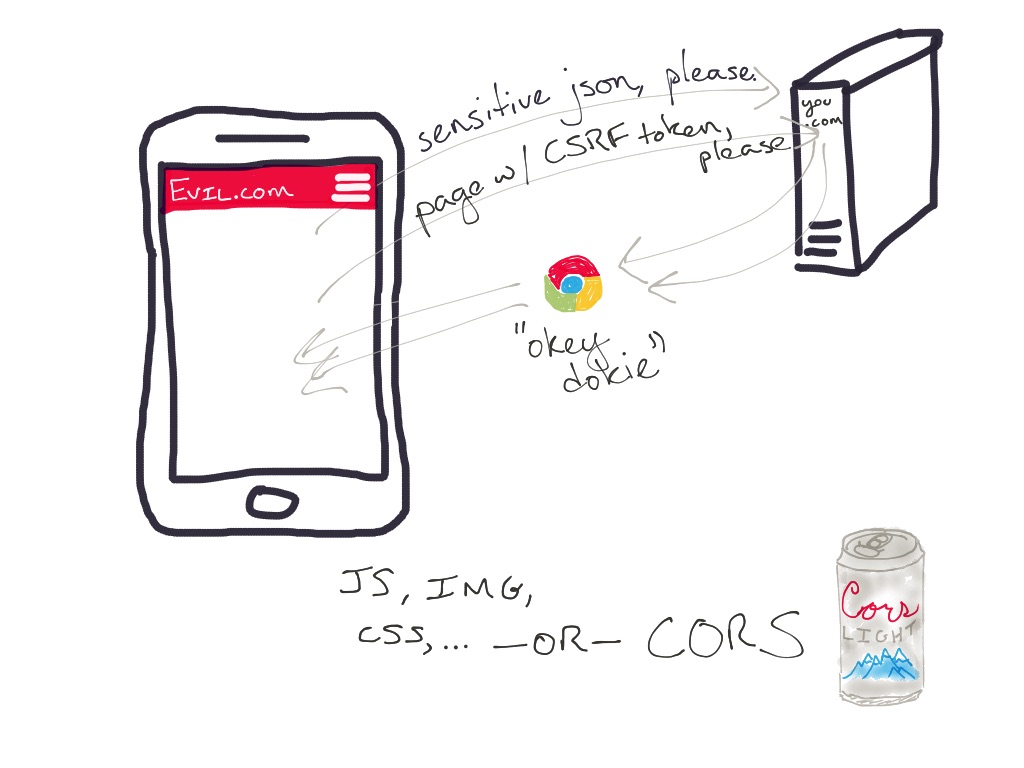 sensitive json, please.
page w/ CSRF token,
please
you
.com
EVIL.com
"okey
dokie"
JS, IMG,
CSS,... —OR— CORS
Cors
LIGHT